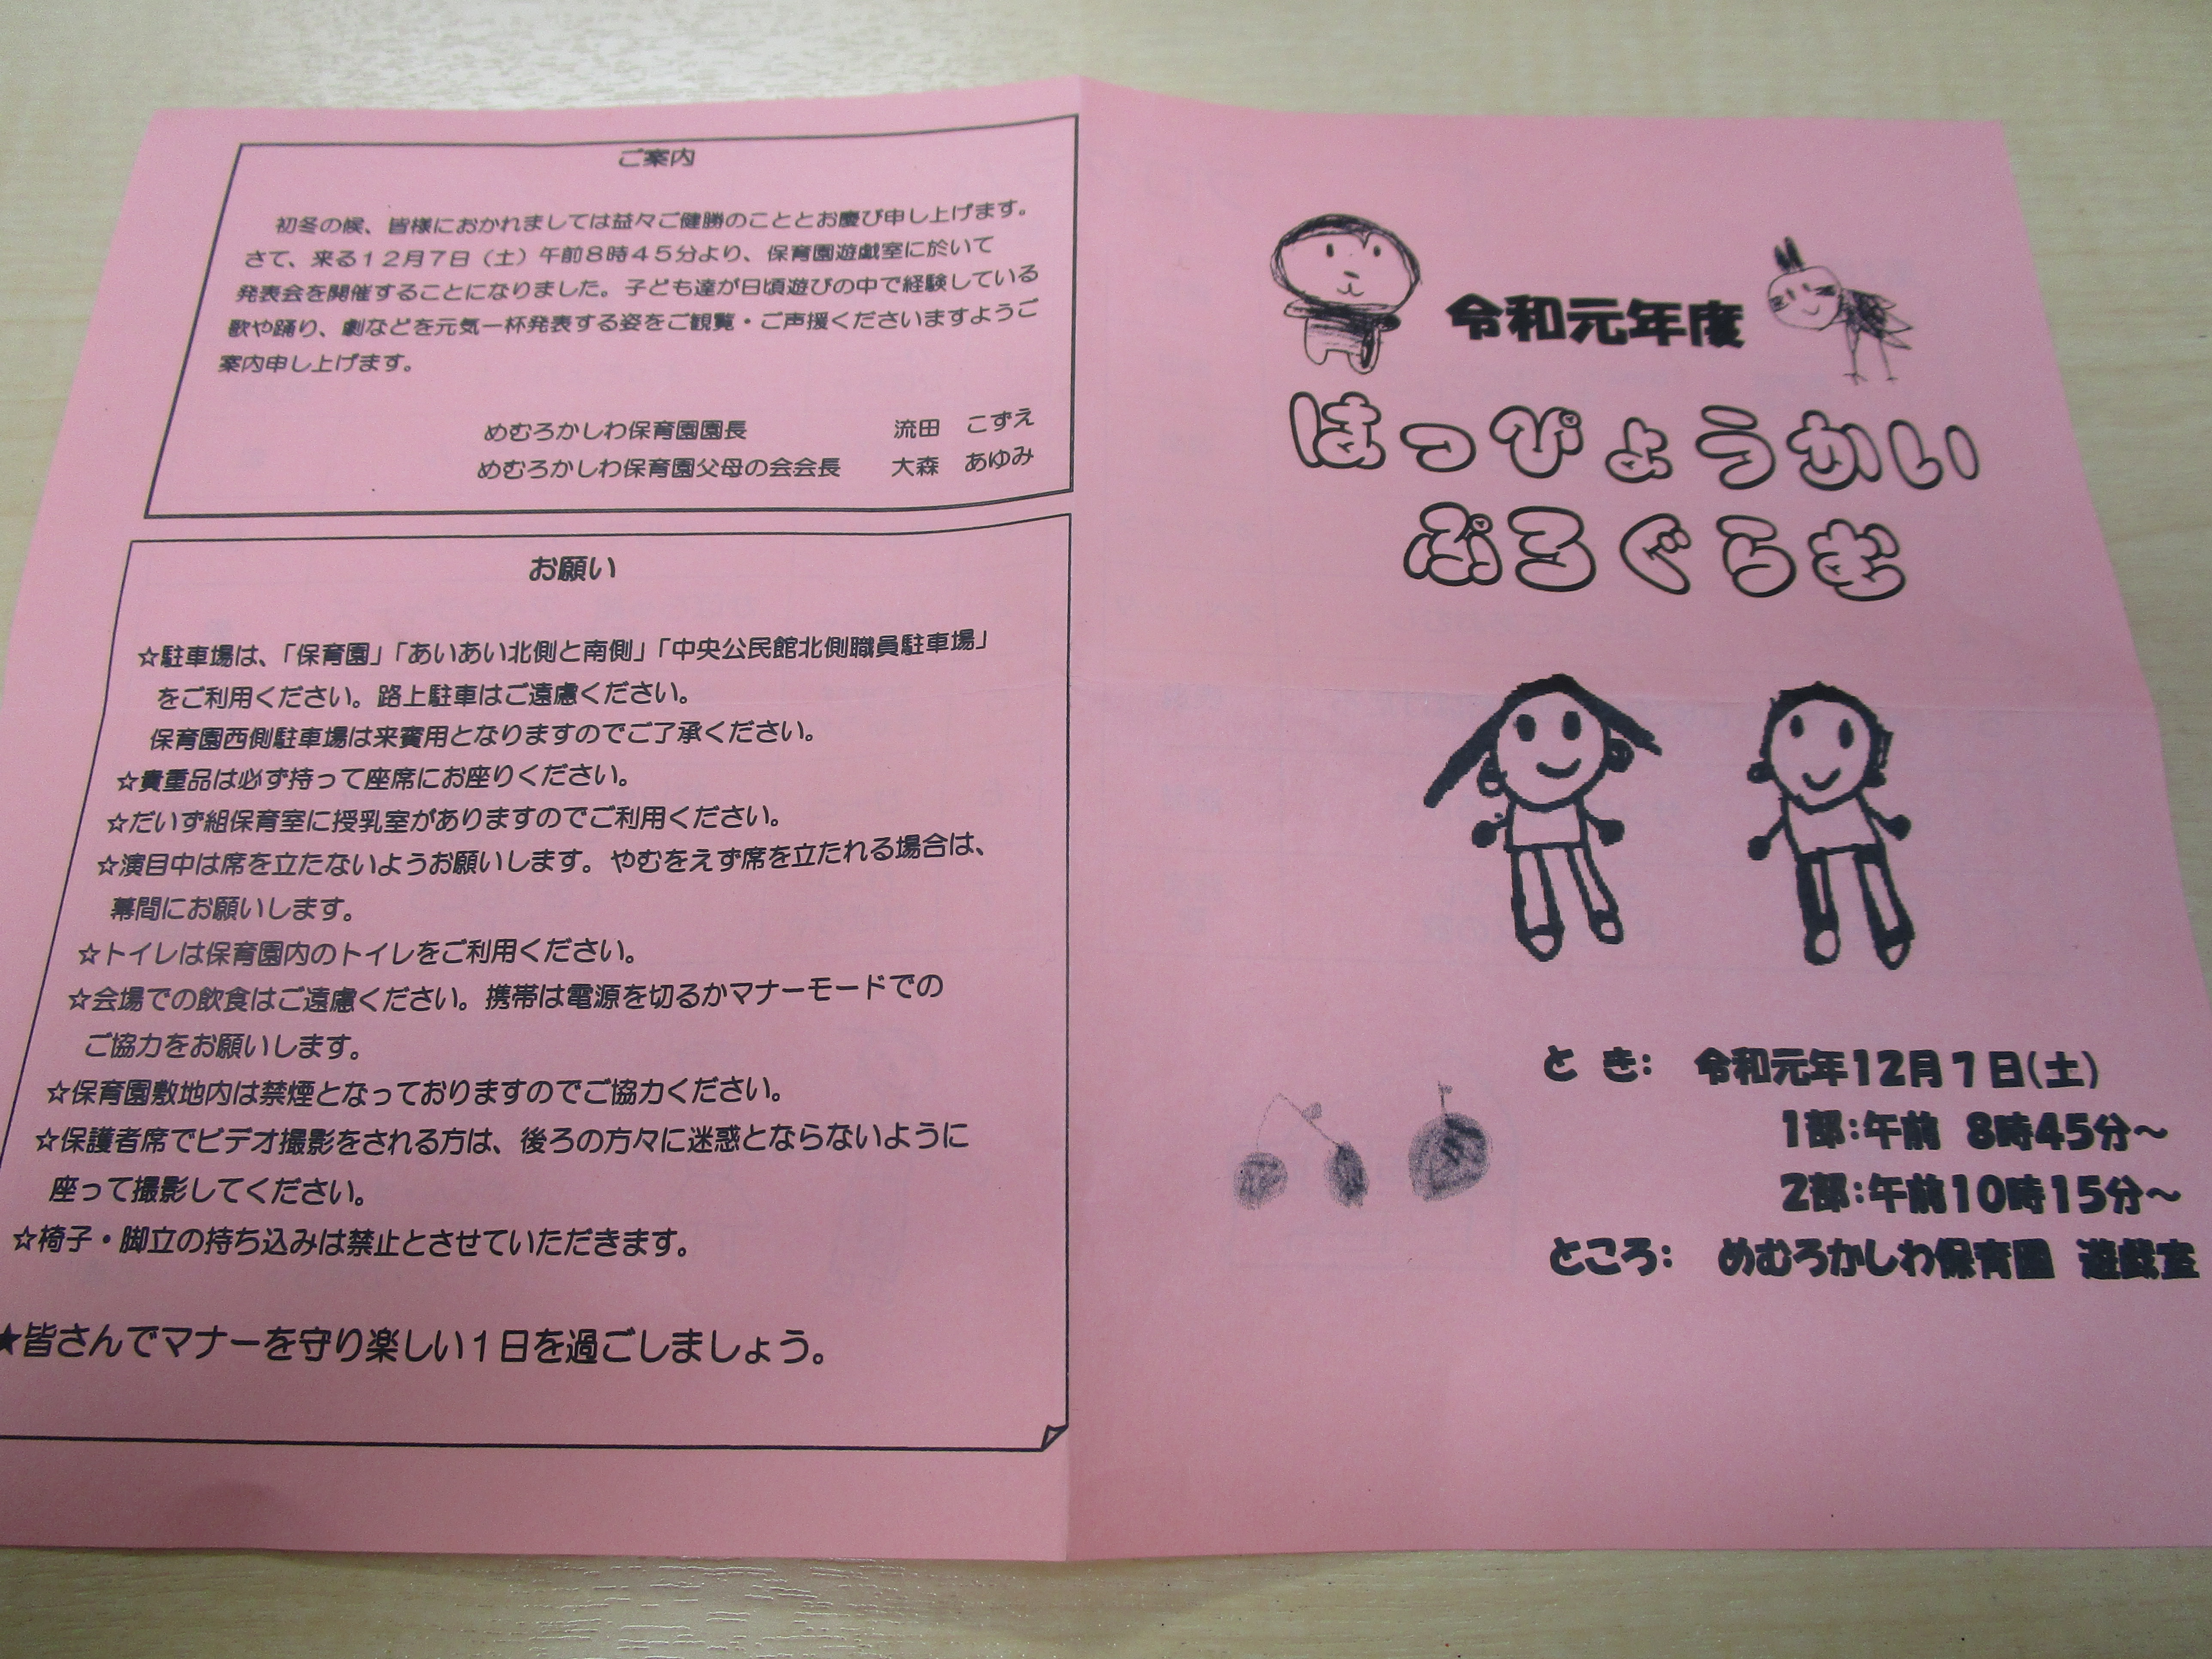 ご案内
初冬の候、皆様におかれましては益々ご健勝のこととお慶び申し上げます。
さて、来る１２月７日（土）午前８時４５分より、保育園遊戯室に於いて
発表会を開催することになりました。子ども達が日頃遊びの中で経験している
歌や踊り、劇などを元気一杯発表する姿をご観覧・ご声援くださいますようご
案内申し上げます。
めむろかしわ保育園園長　流田　こずえ
めむろかしわ保育園父母の会会長　大森　あゆみ
お願い
☆駐車場は、「保育園」「あいあい北側と南側」「中央公民館北側職員駐車場」
をご利用ください。路上駐車はご遠慮ください。
保育園西側駐車場は来賓用となりますのでご了承ください。
☆貴重品は必ず持って座席にお座りください。
☆だいず組保育室に授乳室がありますのでご利用ください。
☆演目中は席を立たないようお願いします。やむをえず席を立たれる場合は、
幕間にお願いします。
☆トイレは保育園内のトイレをご利用ください。
☆会場での飲食はご遠慮ください。携帯は電源を切るかマナーモードでの
ご協力をお願いします。
☆保育園敷地内は禁煙となっておりますのでご協力ください。
☆保護者席でビデオ撮影をされる方は、後ろの方々に迷惑とならないように
座って撮影してください。
☆椅子・脚立の持ち込みは禁止とさせていただきます。
★皆さんでマナーを守り楽しい１日を過ごしましょう。
令和元年度
はっぴょうかい
ぷろぐらむ
とき：　令和元年１２月７日（土）
１部：午前　８時４５分～
２部：午前１０時１５分～
ところ：　めむろかしわ保育園　遊戯室